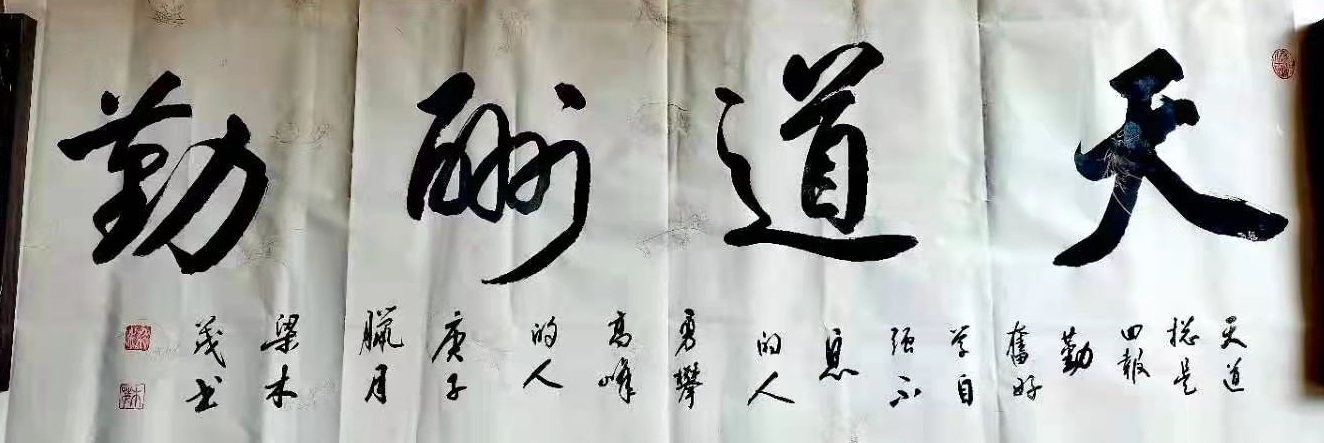 天道酬勤
天道
总是
回报
勤
奋好
学自
强不
息
的人
勇攀
高峰
的人
庚子
腊月
梁木
茂书